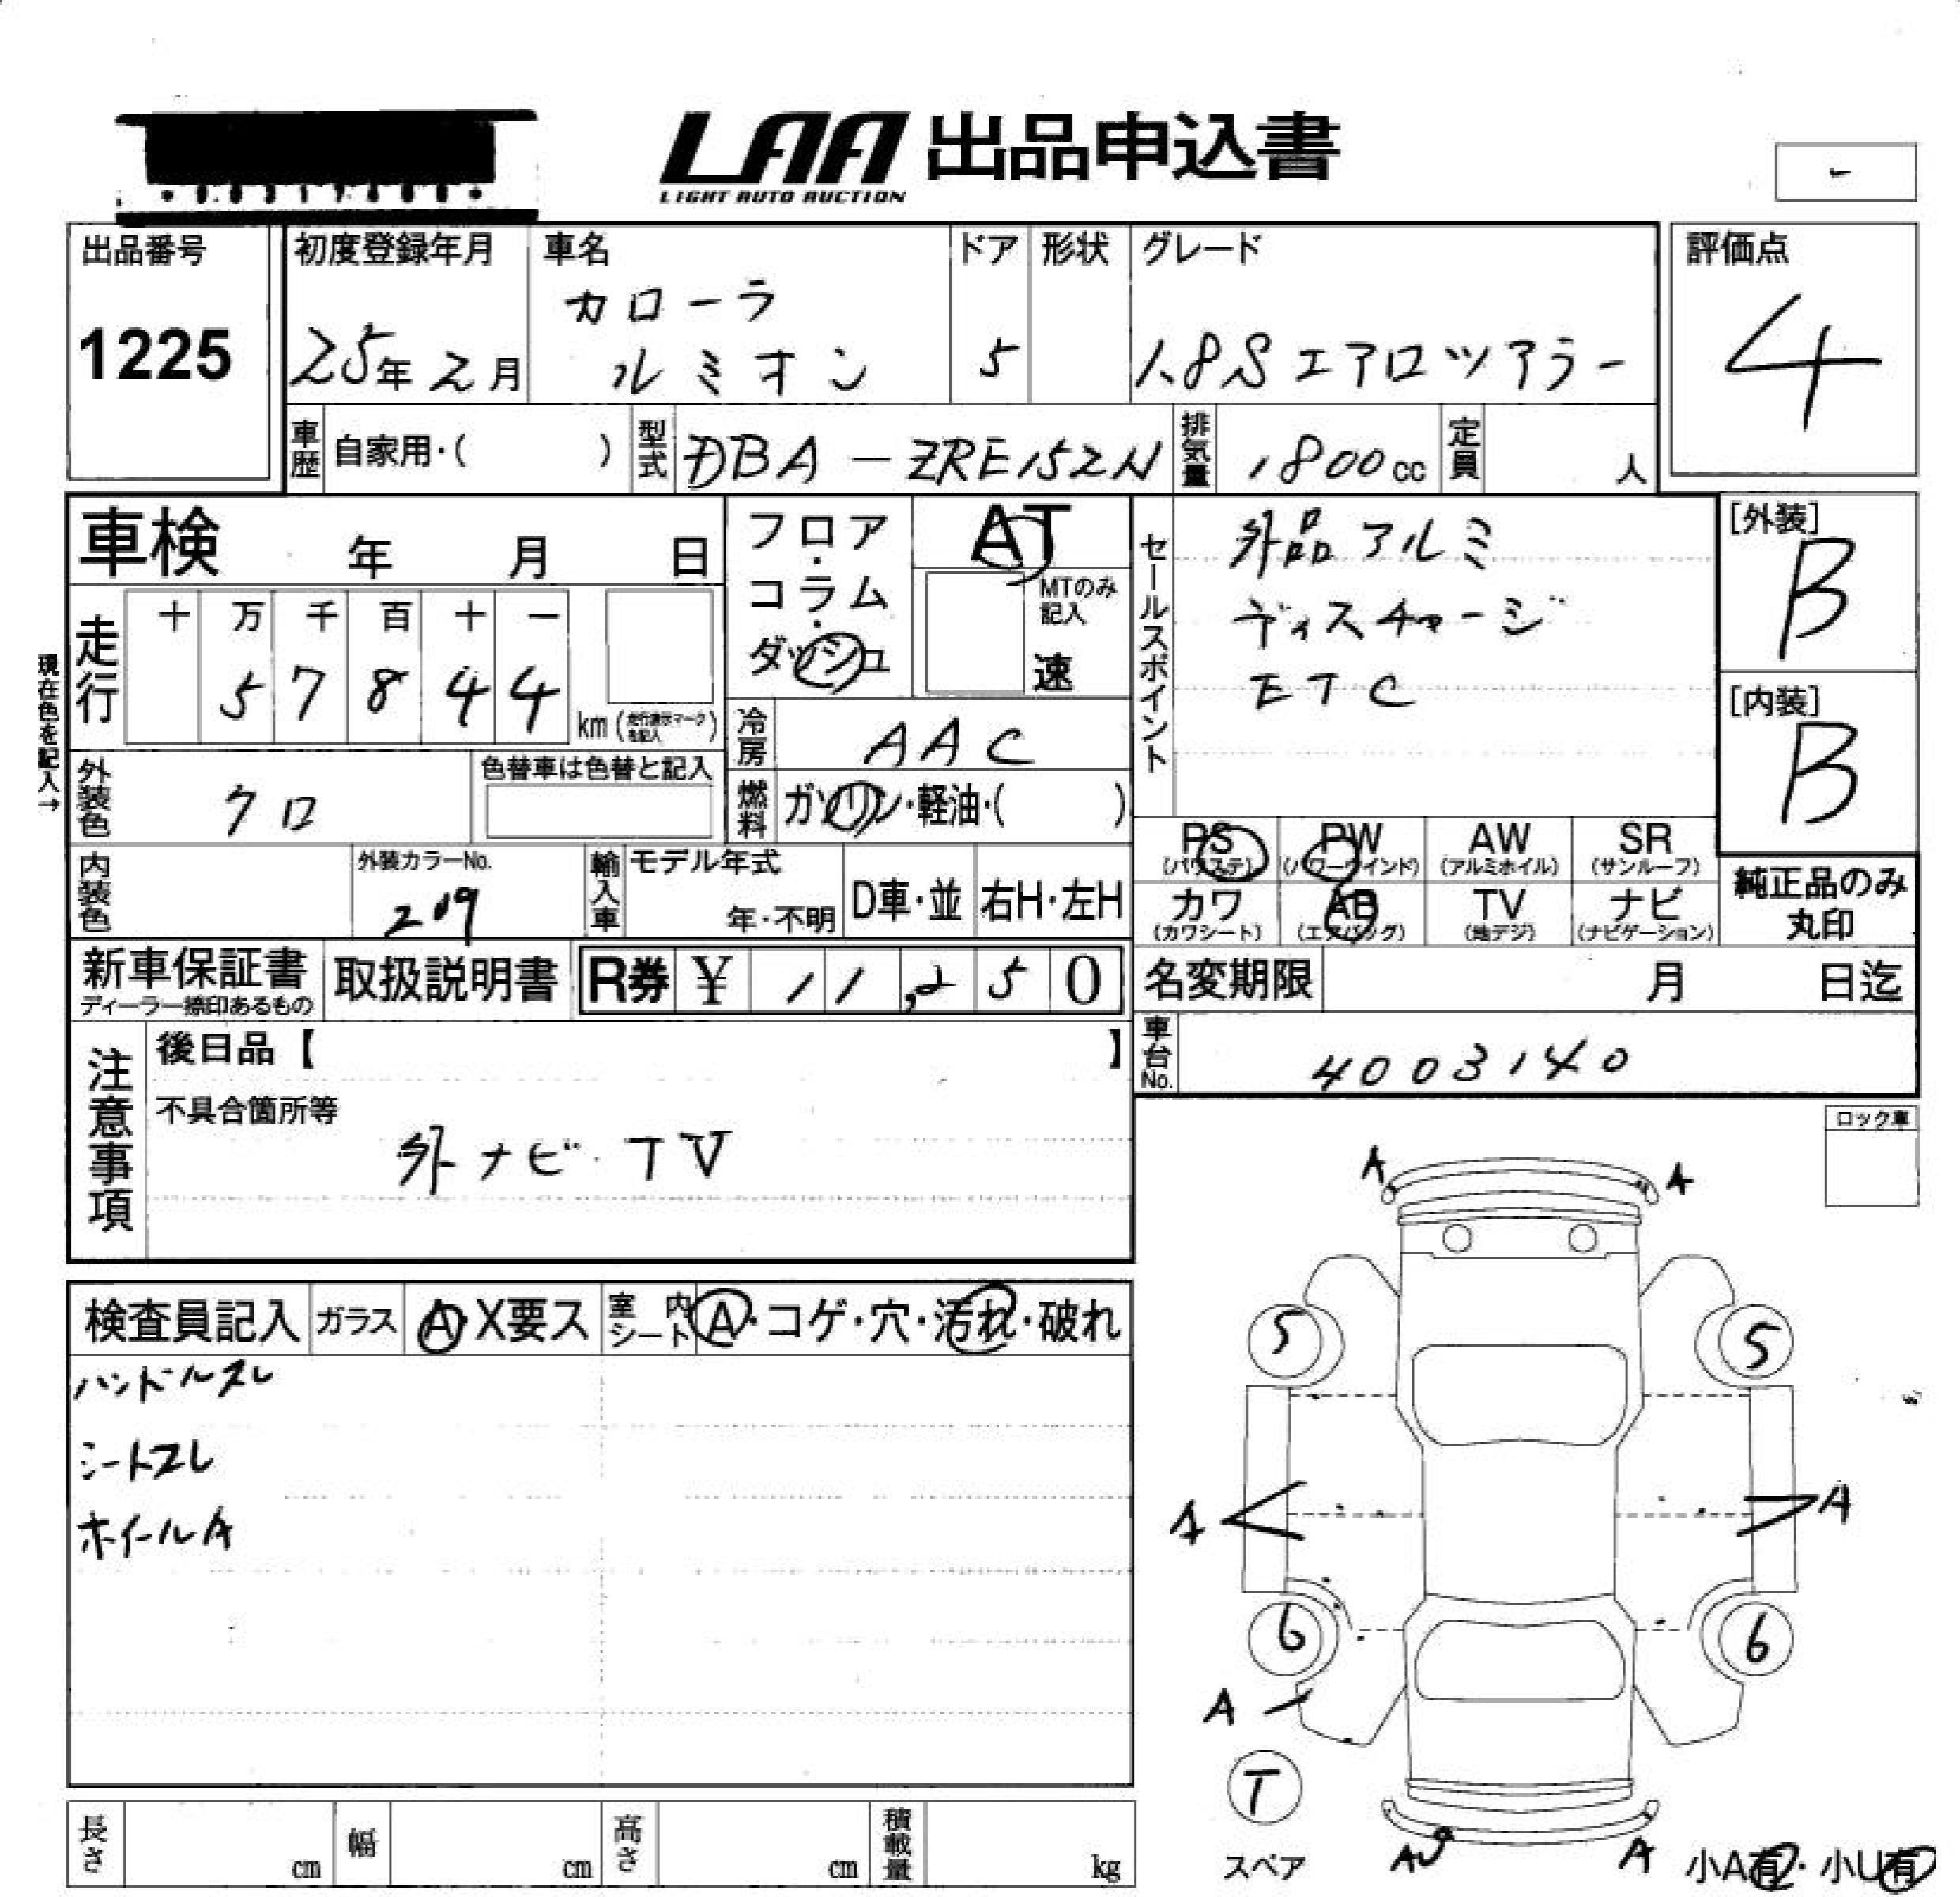 LAA 出品申込書
LIGHT AUTO AUCTION
-
出品番号
1225
初度登録年月
25年 2月
車名
カローラ
ルミオン
ドア
5
形状
グレード
1.8S エアロツアラー
評価点
4
車歴 自家用・( )
型式 DBA-ZRE152N
排気量 1800cc
定員 人
車検 年 月 日
フロア・コラム・ダッシュ
AT
MTのみ記入
速
セールスポイント
外品アルミ
ディスチャージ
ETC
[外装]
B
[内装]
B
現在色を記入→
走行
十 万 千 百 十 一
5 7 8 4 4
km (走行表示マークを記入)
冷房 AAC
外装色 クロ
色替車は色替と記入
燃料 ガソリン・軽油・( )
PS (パワステ)
PW (パワーウインド)
AW (アルミホイル)
SR (サンルーフ)
カワ (カワシート)
AB (エアバッグ)
TV (地デジ)
ナビ (ナビゲーション)
純正品のみ
丸印
内装色
外装カラーNo.
209
輸入車
モデル年式
年・不明
D車・並
右H・左H
新車保証書
ディーラー捺印あるもの
取扱説明書
R券 ¥ 11,250
名変期限 月 日迄
車台No. 4003140
注意事項
後日品【 】
不具合箇所等
外ナビ・TV
ロック車
検査員記入
ガラス A・X要ス
室内シート A・コゲ・穴・汚れ・破れ
ハンドルスレ
シートスレ
ホイールA
A A
5 5
A A
6 6
A
T
スペア
AU A
小A有・小U有
長さ cm
幅 cm
高さ cm
積載量 kg